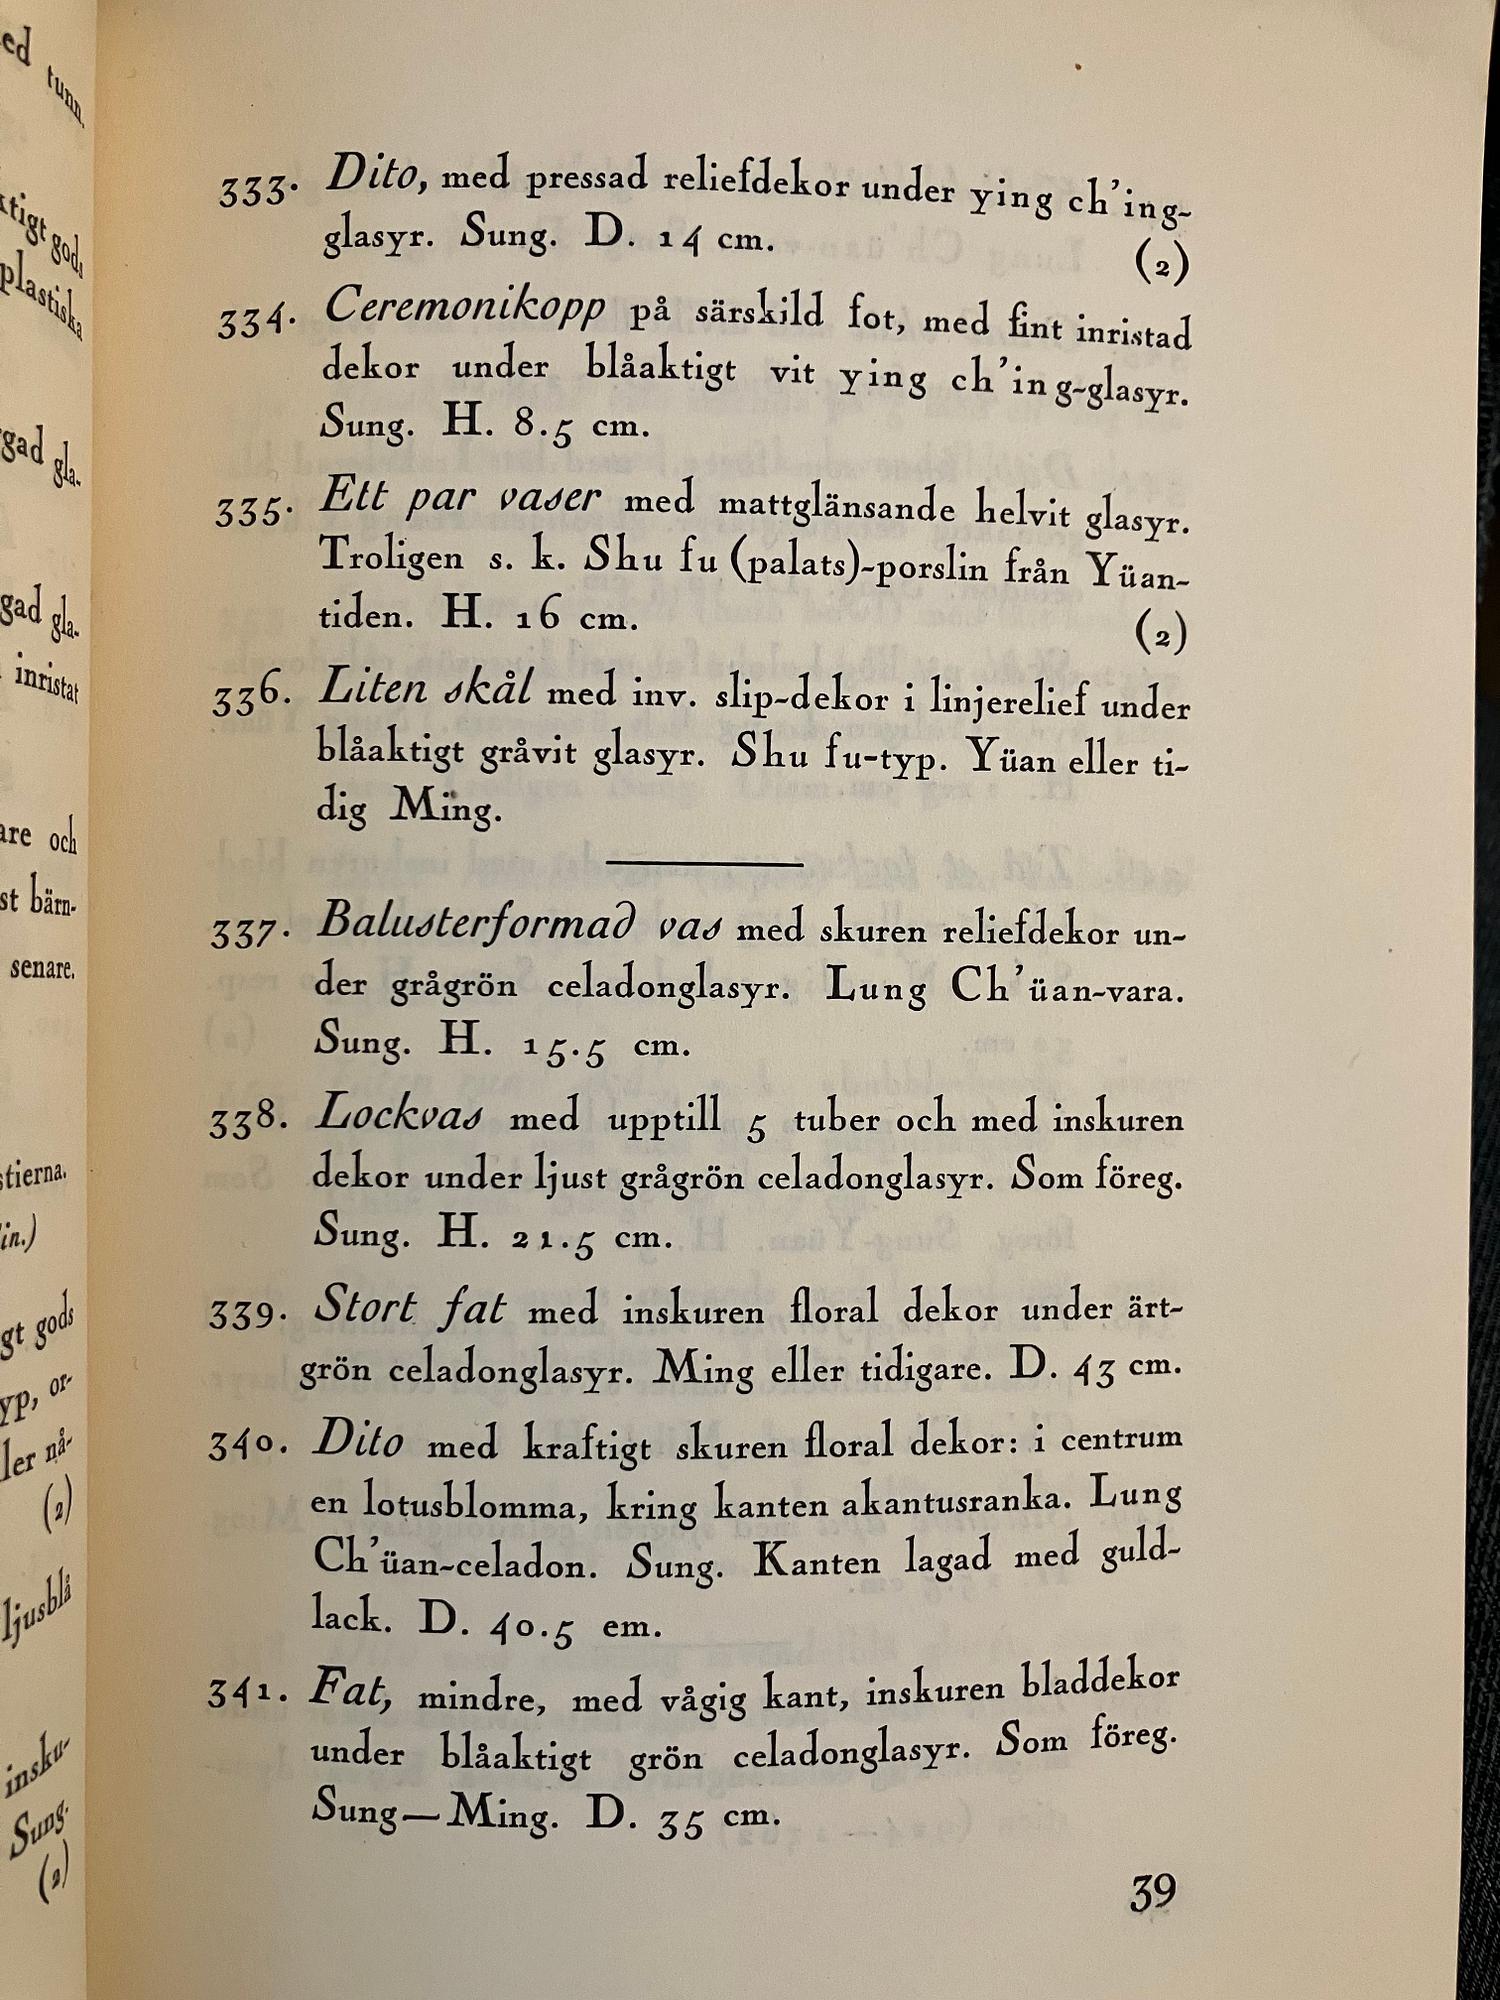 ed tunn.
ktigt gods
plastiska
gad gla-
gad gla-
inristat
are och
st bärn-
senare.
stierna.
in.)
gt gods
yp, or-
ler nå-
(2)
ljusblå
insku-
Sung.
(2)
333. Dito, med pressad reliefdekor under ying ch'ing-
glasyr. Sung. D. 14 cm. (2)
334. Ceremonikopp på särskild fot, med fint inristad
dekor under blåaktigt vit ying ch'ing-glasyr.
Sung. H. 8.5 cm.
335. Ett par vaser med mattglänsande helvit glasyr.
Troligen s. k. Shu fu (palats)-porslin från Yüan-
tiden. H. 16 cm. (2)
336. Liten skål med inv. slip-dekor i linjerelief under
blåaktigt gråvit glasyr. Shu fu-typ. Yüan eller ti-
dig Ming.
337. Balusterformad vas med skuren reliefdekor un-
der grågrön celadonglasyr. Lung Ch'üan-vara.
Sung. H. 15.5 cm.
338. Lockvas med upptill 5 tuber och med inskuren
dekor under ljust grågrön celadonglasyr. Som föreg.
Sung. H. 21.5 cm.
339. Stort fat med inskuren floral dekor under ärt-
grön celadonglasyr. Ming eller tidigare. D. 43 cm.
340. Dito med kraftigt skuren floral dekor: i centrum
en lotusblomma, kring kanten akantusranka. Lung
Ch'üan-celadon. Sung. Kanten lagad med guld-
lack. D. 40.5 em.
341. Fat, mindre, med vågig kant, inskuren bladdekor
under blåaktigt grön celadonglasyr. Som föreg.
Sung—Ming. D. 35 cm.
39